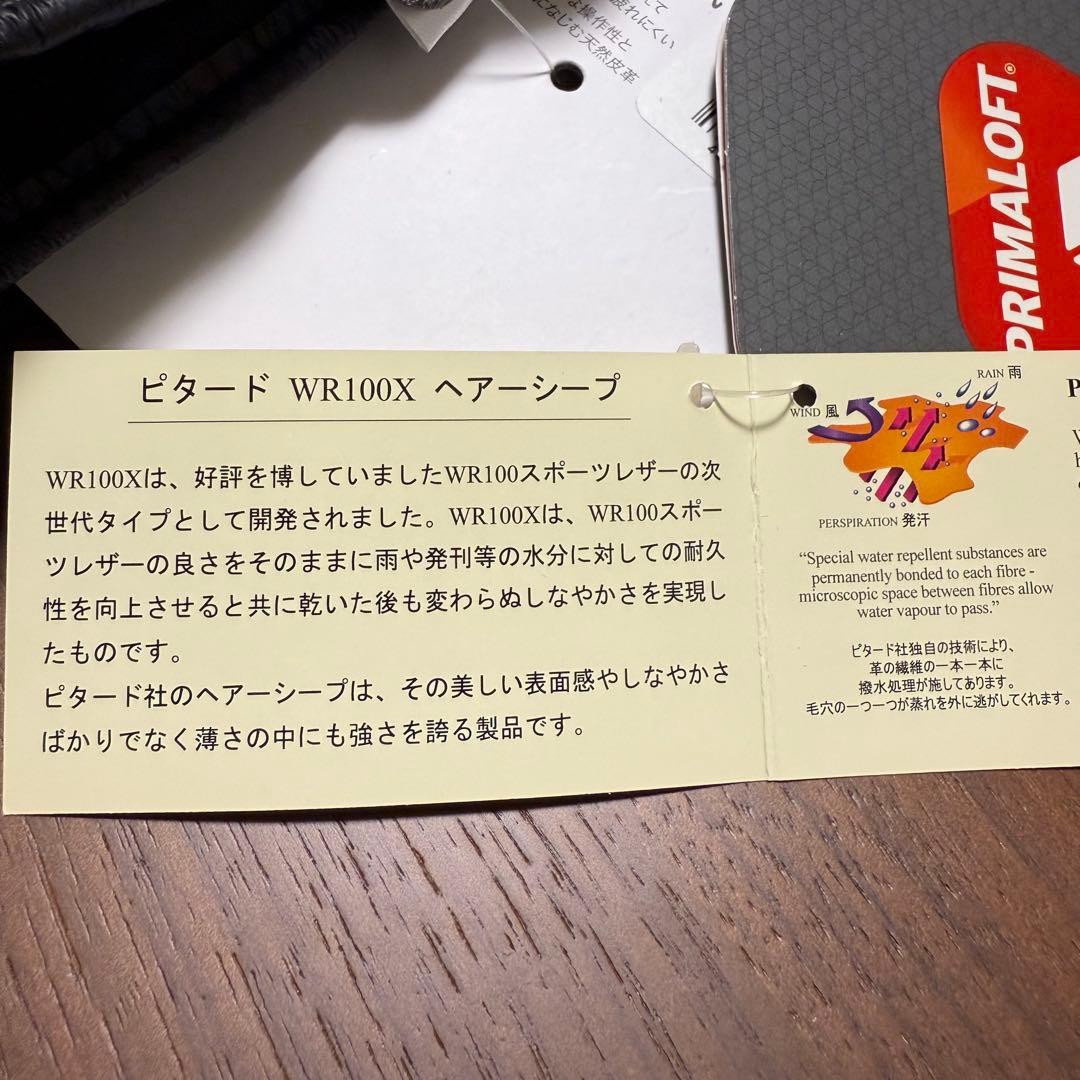 疲れにくい
操作性と
になじむ天然皮革
PRIMALOFT®
ピタード WR100X ヘアーシープ
WR100Xは、好評を博していましたWR100スポーツレザーの次
世代タイプとして開発されました。WR100Xは、WR100スポー
ツレザーの良さをそのままに雨や発刊等の水分に対しての耐久
性を向上させると共に乾いた後も変わらぬしなやかさを実現し
たものです。
ピタード社のヘアーシープは、その美しい表面感やしなやかさ
ばかりでなく薄さの中にも強さを誇る製品です。
RAIN 雨
WIND 風
PERSPIRATION 発汗
“Special water repellent substances are
permanently bonded to each fibre -
microscopic space between fibres allow
water vapour to pass.”
ピタード社独自の技術により、
革の繊維の一本一本に
撥水処理が施してあります。
毛穴の一つ一つが蒸れを外に逃がしてくれます。